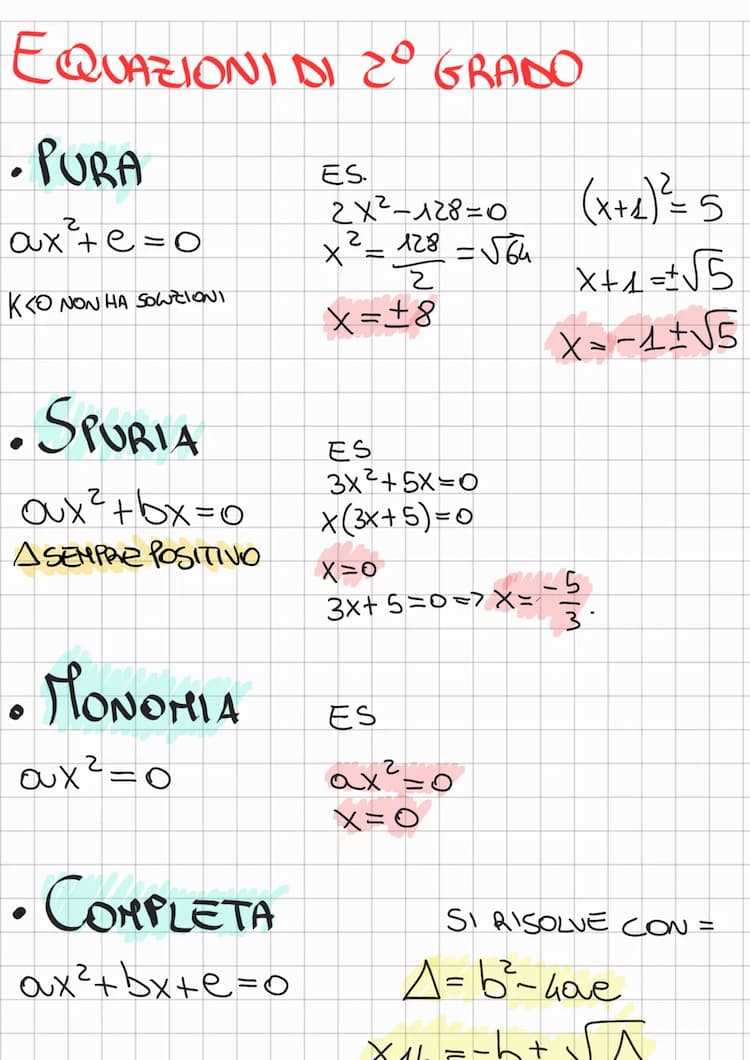 EQUAZIONI DI 2° GRADO
• PURA
ax²+c=0
K<0 NON HA SOLUZIONI
ES.
2x²-128=0
x²=128/2=√64
x=±8
(x+1)²=5
x+1=±√5
x=-1±√5
• SPURIA
ax²+bx=0
Δ SEMPRE POSITIVO
ES
3x²+5x=0
x(3x+5)=0
x=0
3x+5=0=>x=-5/3.
• MONOMIA
ax²=0
ES
ax²=0
x=0
• COMPLETA
ax²+bx+c=0
SI RISOLVE CON =
Δ=b²-4ac